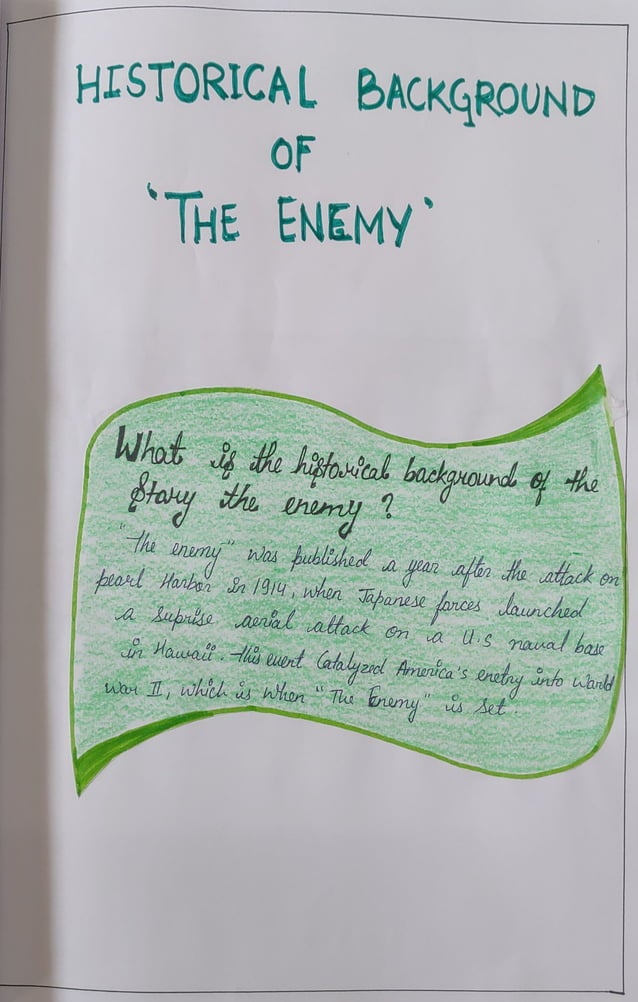 HISTORICAL BACKGROUND
OF
'THE ENEMY'
What is the historical background of the
Story the enemy ?
"The enemy" was published a year after the attack on
pearl Harbor in 1914, when Japanese forces launched
a suprise aerial attack on a U.S naval base
in Hawaii. This event Catalyzed America's enetry into World
War II, which is when "The Enemy" is set.